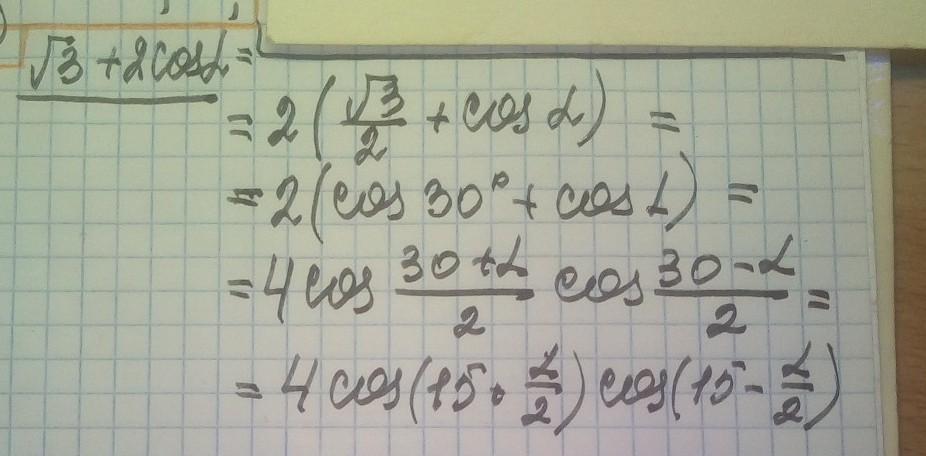 √3 + 2cosα =
= 2(√3/2 + cos α) =
= 2(cos 30° + cos α) =
= 4 cos (30 + α)/2 cos (30 - α)/2 =
= 4 cos(15 + α/2) cos(15 - α/2)